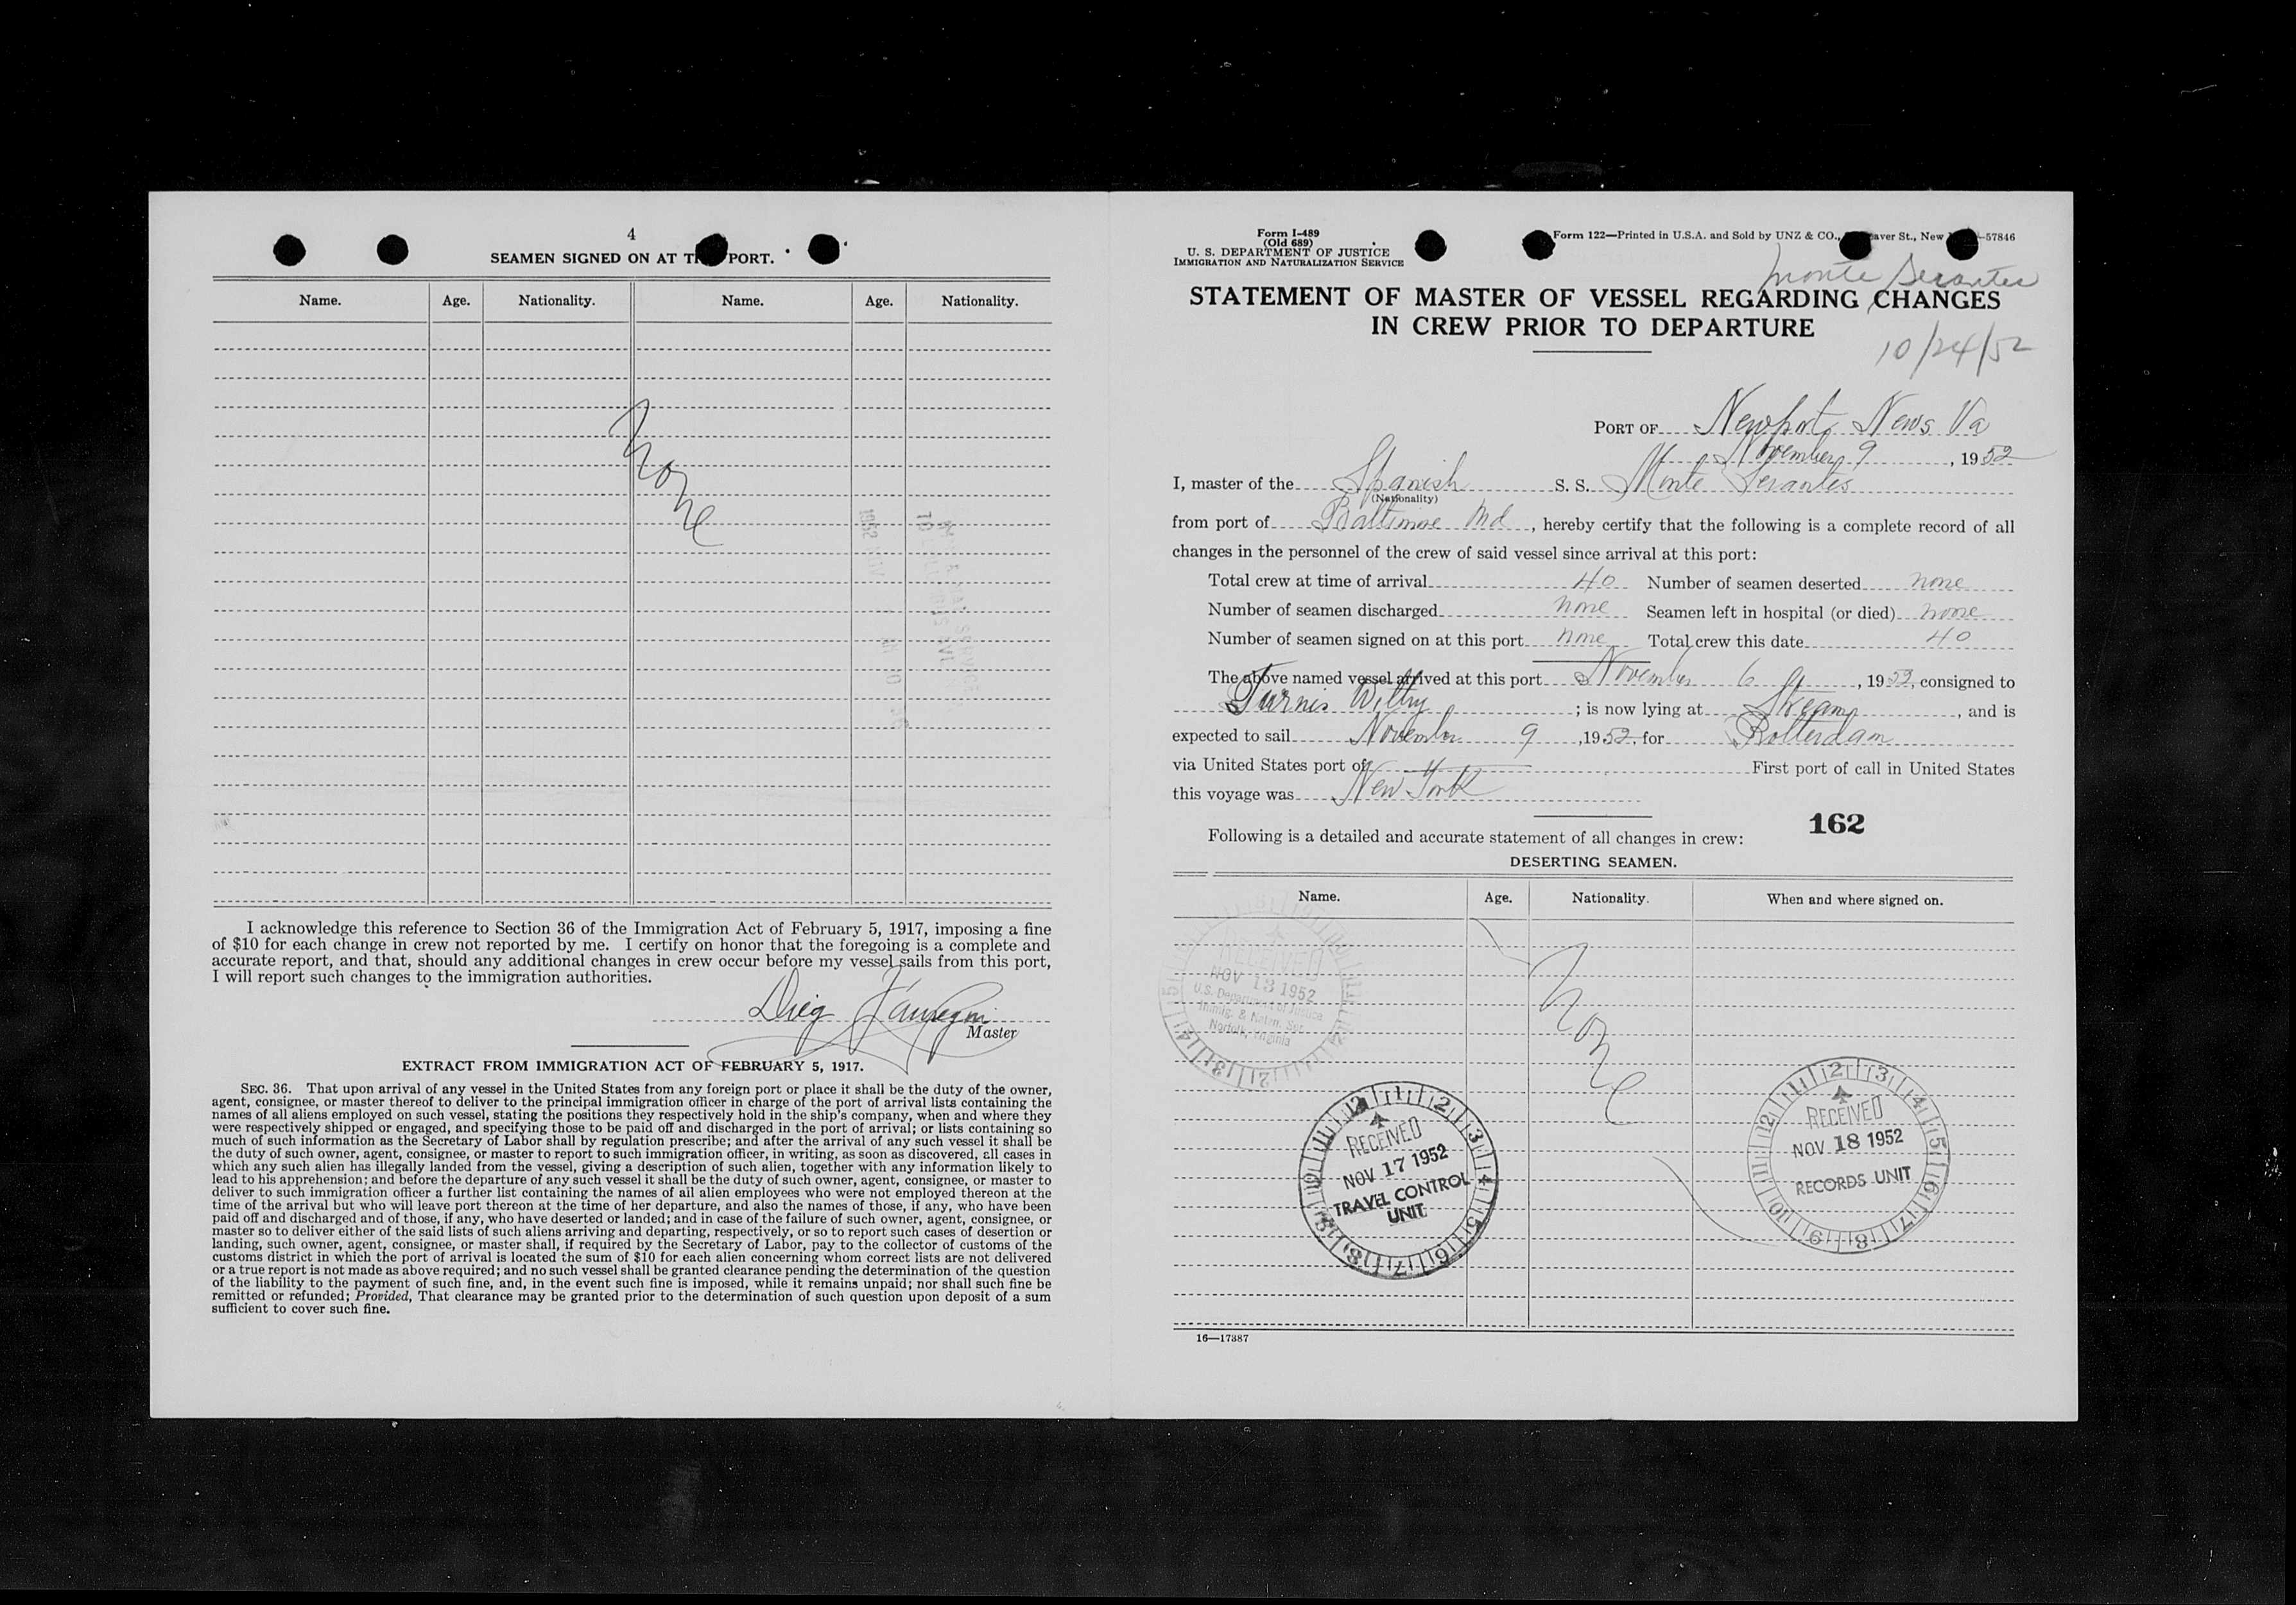 4
SEAMEN SIGNED ON AT PORT.
Name. Age. Nationality. Name. Age. Nationality.
None
I acknowledge this reference to Section 36 of the Immigration Act of February 5, 1917, imposing a fine
of $10 for each change in crew not reported by me. I certify on honor that the foregoing is a complete and
accurate report, and that, should any additional changes in crew occur before my vessel sails from this port,
I will report such changes to the immigration authorities.
Master
EXTRACT FROM IMMIGRATION ACT OF FEBRUARY 5, 1917.
SEC. 36. That upon arrival of any vessel in the United States from any foreign port or place it shall be the duty of the owner,
agent, consignee, or master thereof to deliver to the principal immigration officer in charge of the port of arrival lists containing the
names of all aliens employed on such vessel, stating the positions they respectively hold in the ship's company, when and where they
were respectively shipped or engaged, and specifying those to be paid off and discharged in the port of arrival; or lists containing so
much of such information as the Secretary of Labor shall by regulation prescribe; and after the arrival of any such vessel it shall be
the duty of such owner, agent, consignee, or master to report to such immigration officer, in writing, as soon as discovered, all cases in
which any such alien has illegally landed from the vessel, giving a description of such alien, together with any information likely to
lead to his apprehension; and before the departure of any such vessel it shall be the duty of such owner, agent, consignee, or master to
deliver to such immigration officer a further list containing the names of all alien employees who were not employed thereon at the
time of the arrival but who will leave port thereon at the time of her departure, and also the names of those, if any, who have been
paid off and discharged and of those, if any, who have deserted or landed; and in case of the failure of such owner, agent, consignee, or
master so to deliver either of the said lists of such aliens arriving and departing, respectively, or so to report such cases of desertion or
landing, such owner, agent, consignee, or master shall, if required by the Secretary of Labor, pay to the collector of customs of the
customs district in which the port of arrival is located the sum of $10 for each alien concerning whom correct lists are not delivered
or a true report is not made as above required; and no such vessel shall be granted clearance pending the determination of the question
of the liability to the payment of such fine, and, in the event such fine is imposed, while it remains unpaid; nor shall such fine be
remitted or refunded; Provided, That clearance may be granted prior to the determination of such question upon deposit of a sum
sufficient to cover such fine.
Form I-489
(Old 689)
U. S. DEPARTMENT OF JUSTICE
IMMIGRATION AND NATURALIZATION SERVICE
Form 122—Printed in U.S.A. and Sold by UNZ & CO., St., New 57846
Monte Serantes
STATEMENT OF MASTER OF VESSEL REGARDING CHANGES
IN CREW PRIOR TO DEPARTURE
10/24/52
PORT OF Newport News Va
November 9, 1952
I, master of the Spanish S. S. Monte Serantes
(Nationality)
from port of Baltimore Md, hereby certify that the following is a complete record of all
changes in the personnel of the crew of said vessel since arrival at this port:
Total crew at time of arrival 40 Number of seamen deserted none
Number of seamen discharged none Seamen left in hospital (or died) none
Number of seamen signed on at this port none Total crew this date 40
The above named vessel arrived at this port November 6, 1952, consigned to
Furnis Withy; is now lying at Stream, and is
expected to sail November 9, 1952, for Rotterdam
via United States port of First port of call in United States
this voyage was New York
162
Following is a detailed and accurate statement of all changes in crew:
DESERTING SEAMEN.
Name. Age. Nationality. When and where signed on.
None
RECEIVED
NOV 13 1952
U.S. Department of Justice
Immig. & Natzn. Ser.
Norfolk, Virginia
12 1 2 3 4 5 6 7 8 9 10 11
RECEIVED
NOV 17 1952
TRAVEL CONTROL
UNIT
12 1 2 3 4 5 6 7 8 9 10 11
RECEIVED
NOV 18 1952
RECORDS UNIT
16—17387